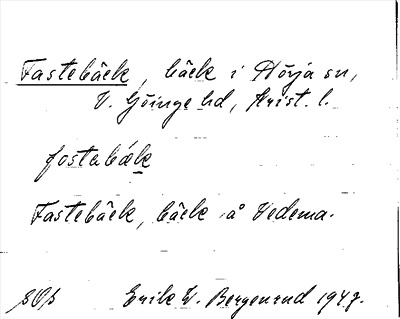 Fastebäck, bäck i Hörja sn,
V. Göinge hd, Krist. l.
fostabák
Fastebäck, bäck å Vedema.
Erik W. Bergenrud 1947.